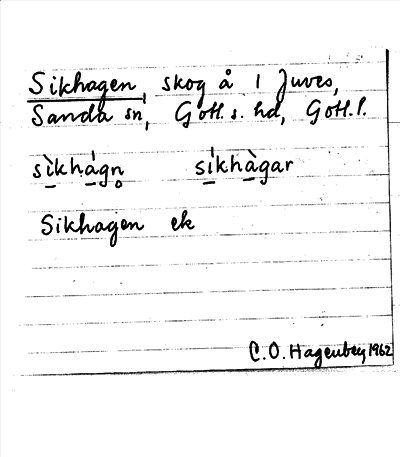 Sikhagen, skog å 1 Juves,
Sanda sn, Gotl. s. hd, Gotl. l.
sìkhágn̥ síkhàgar
Sikhagen ek
C.O. Hagenbey 1962